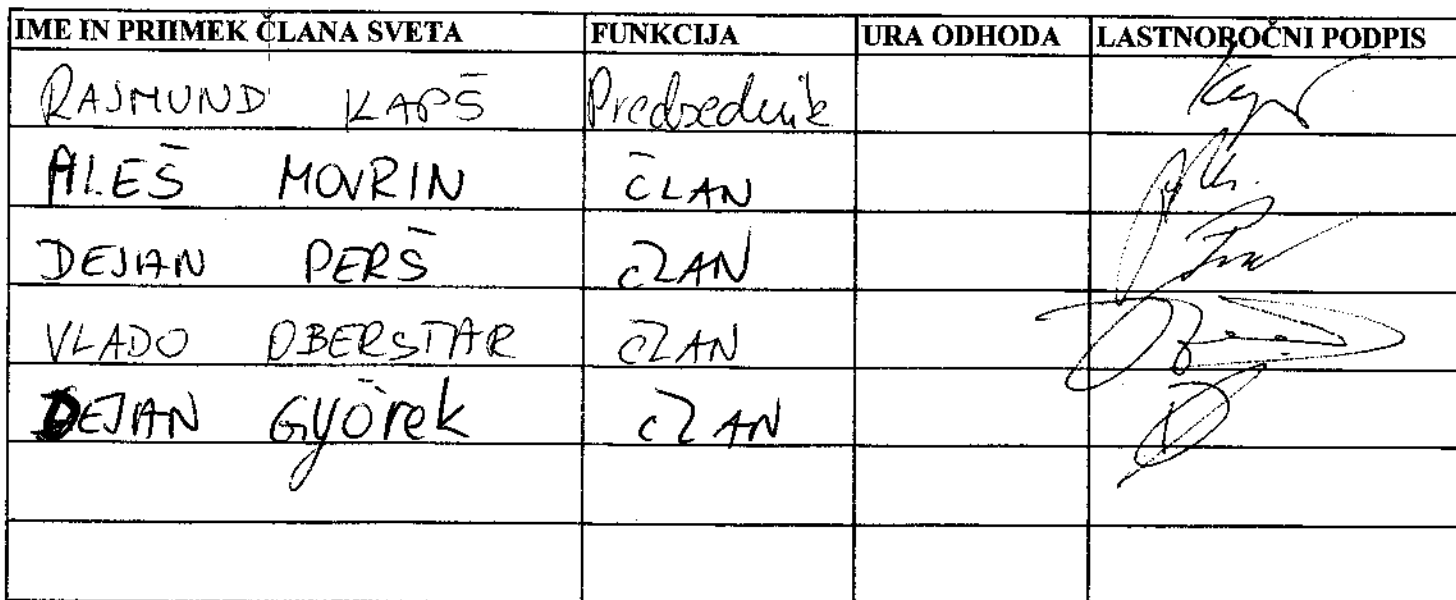 IME IN PRIIMEK ČLANA SVETA FUNKCIJA URA ODHODA LASTNOROČNI PODPIS
RAJMUND KAPŠ Predsednik
ALEŠ MOVRIN ČLAN
DEJAN PERŠ ČLAN
VLADO OBERSTAR ČLAN
DEJAN GYÖrek ČLAN